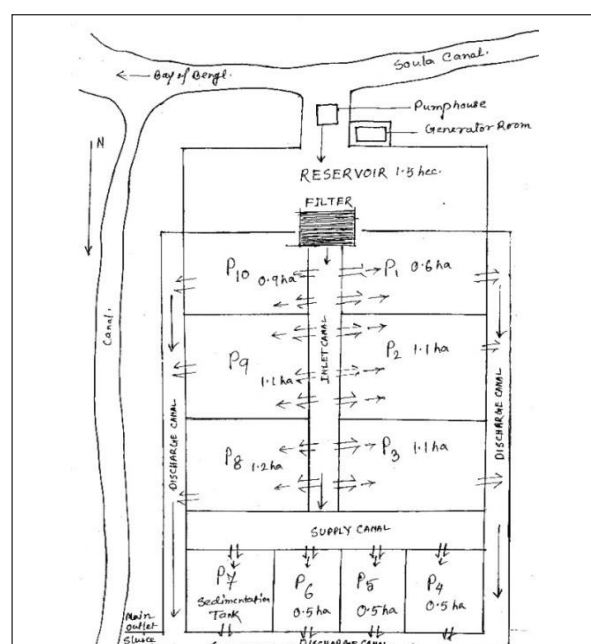 Soula Canal.
Bay of Bengl.
Pumphouse
Generator Room
N
RESERVOIR 1.5 hec.
FILTER
P10 0.9 ha
P1 0.6 ha
Canal.
INLET CANAL
P9
1.1 ha
P2 1.1 ha
DISCHARGE CANAL
DISCHARGE CANAL
P8 1.2 ha
P3 1.1 ha
SUPPLY CANAL
P7
Sedimentation
Tank
P6
0.5 ha
P5
0.5 ha
P4
0.5 ha
Main
outlet
Sluice
DISCHARGE CANAL